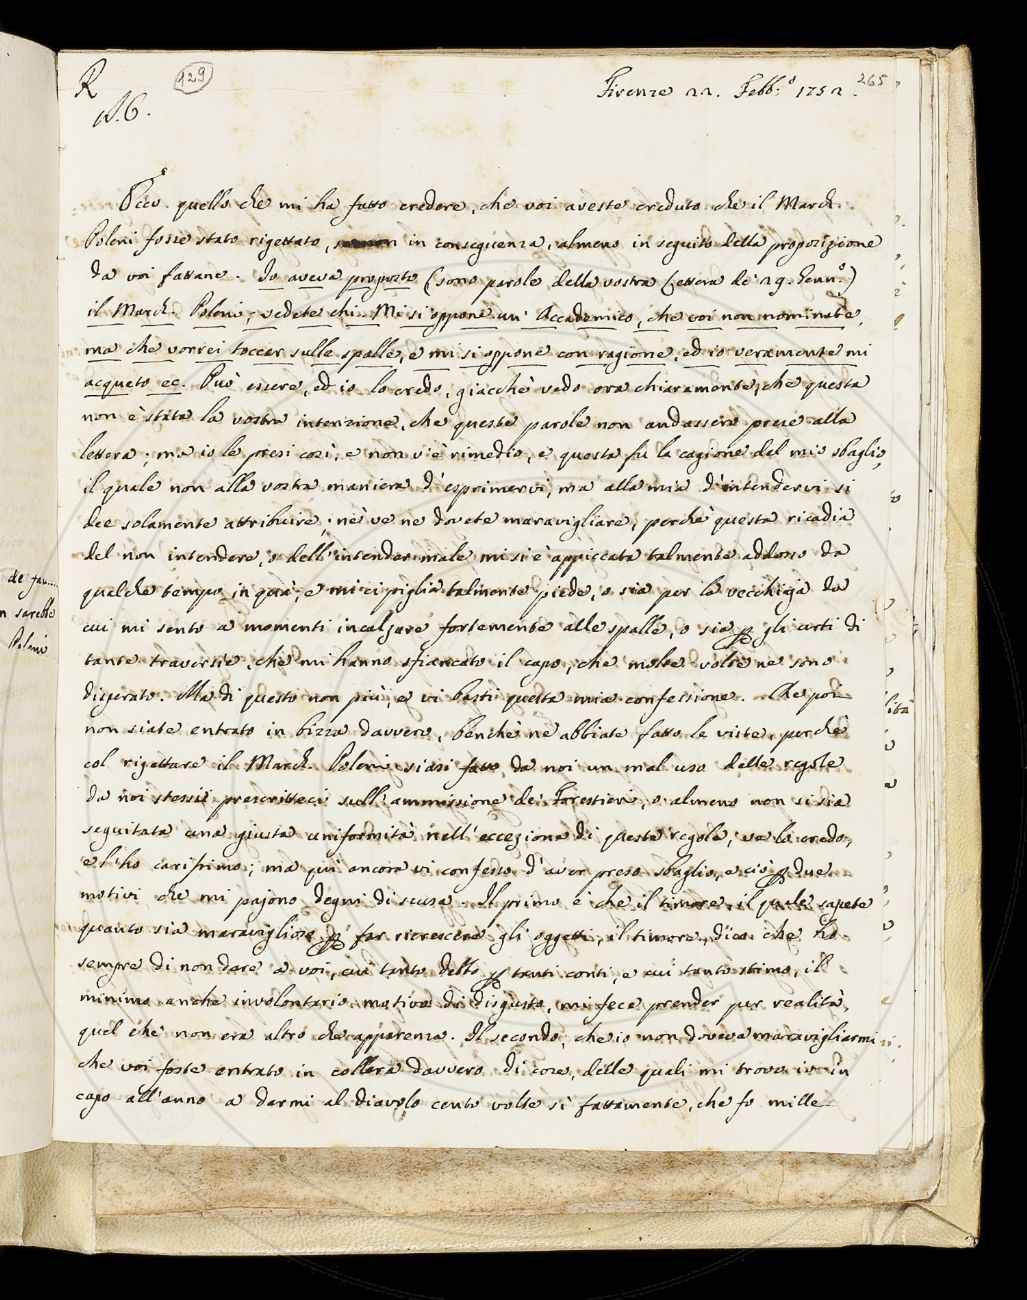 R
129
Firenze 22. Febb.º 1752.
265
A.C.
Ecco quello che mi ha fatto credere, che voi aveste creduto che il March.
Poleni fosse stato rigettato, in conseguenza, almeno in seguito della proposizione
da voi fattane. Io aveva proposto (sono parole della vostra Lettera de' 29. Genn.º)
il March. Poleni; vedete chi. Mi si oppone un' Accademico, che voi non nominate,
ma che vorrei toccar sulle spalle, e mi si oppone con ragione, ed io veramente mi
acqueto ec. Può essere, ed io lo credo, giacchè vedo ora chiaramente, che questa
non è stata la vostra intenzione, che queste parole non andassero prese alla
lettera; ma io le presi così, e non v'è rimedio, e questa fu la cagione del mio sbaglio,
il quale non alla vostra maniera d'esprimervi, ma alla mia d'intendervi si
dee solamente attribuire; nè ve ne dovete maravigliare, perchè questa ricadia
del non intendere, o dell'intender male mi si è appiccata talmente addosso da
qualche tempo in quà, e mi ci piglia talmente piede, o sia per la vecchiaja da
cui mi sento a momenti incalzare fortemente alle spalle, o sia p gli urti di
tante traversie, che mi hanno sfiancato il capo, che molte volte ne sono
disperato. Ma di questo non più, e vi basti questa mia confessione. Che poi
non siate entrato in bizza davvero, benchè ne abbiate fatto le viste, perchè
col rigettare il March. Poleni siasi fatto da noi un mal uso delle regole
da noi stessi prescritteci sull'ammissione de' Forestieri, o almeno non si sia
seguitata una giusta uniformità nell'eccezione di queste regole, ve lo credo,
e l'ho carissimo; ma quì ancora vi confesso d'aver preso sbaglio, e ciò p due
motivi che mi pajono degni di scusa. Il primo è che il timore, il quale sapete
quanto sia maraviglioso p far ricrescere gli oggetti, il timore, dico che ho
sempre di non dare a voi, cui tanto debbo p tanti conti, e cui tanto stimo, il
minimo anche involontario motivo di disgusto, mi fece prender per realità,
quel che non era altro che apparenza. Il secondo, che io non doveva maravigliarmi
che voi foste entrato in collera davvero di cose, delle quali mi trovo io in
capo all'anno a darmi al diavolo cento volte sì fattamente, che fo mille
n sarebbe
Poleni